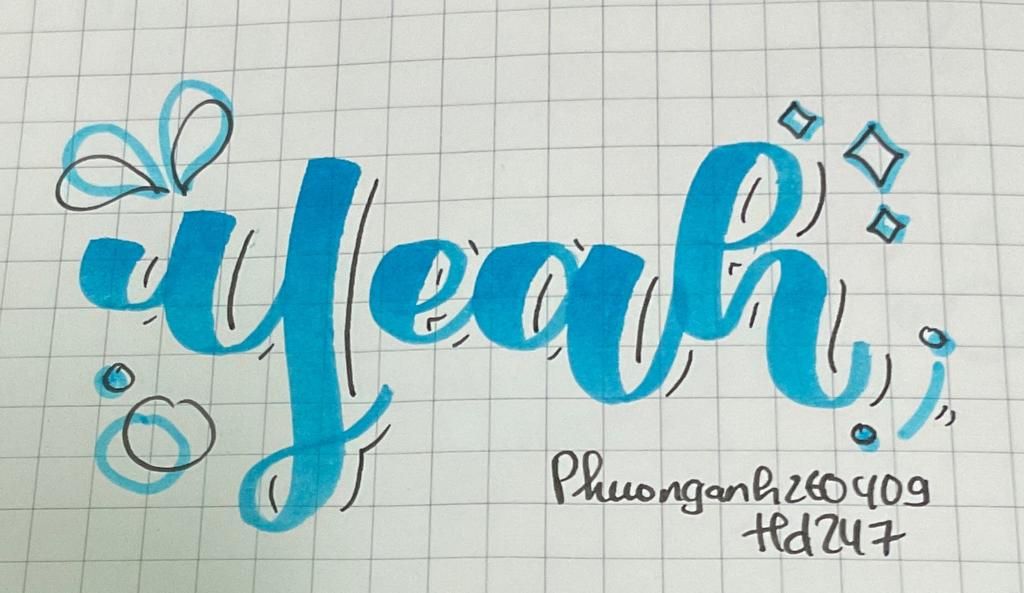 yeah
Phuonganh260409
Hd247